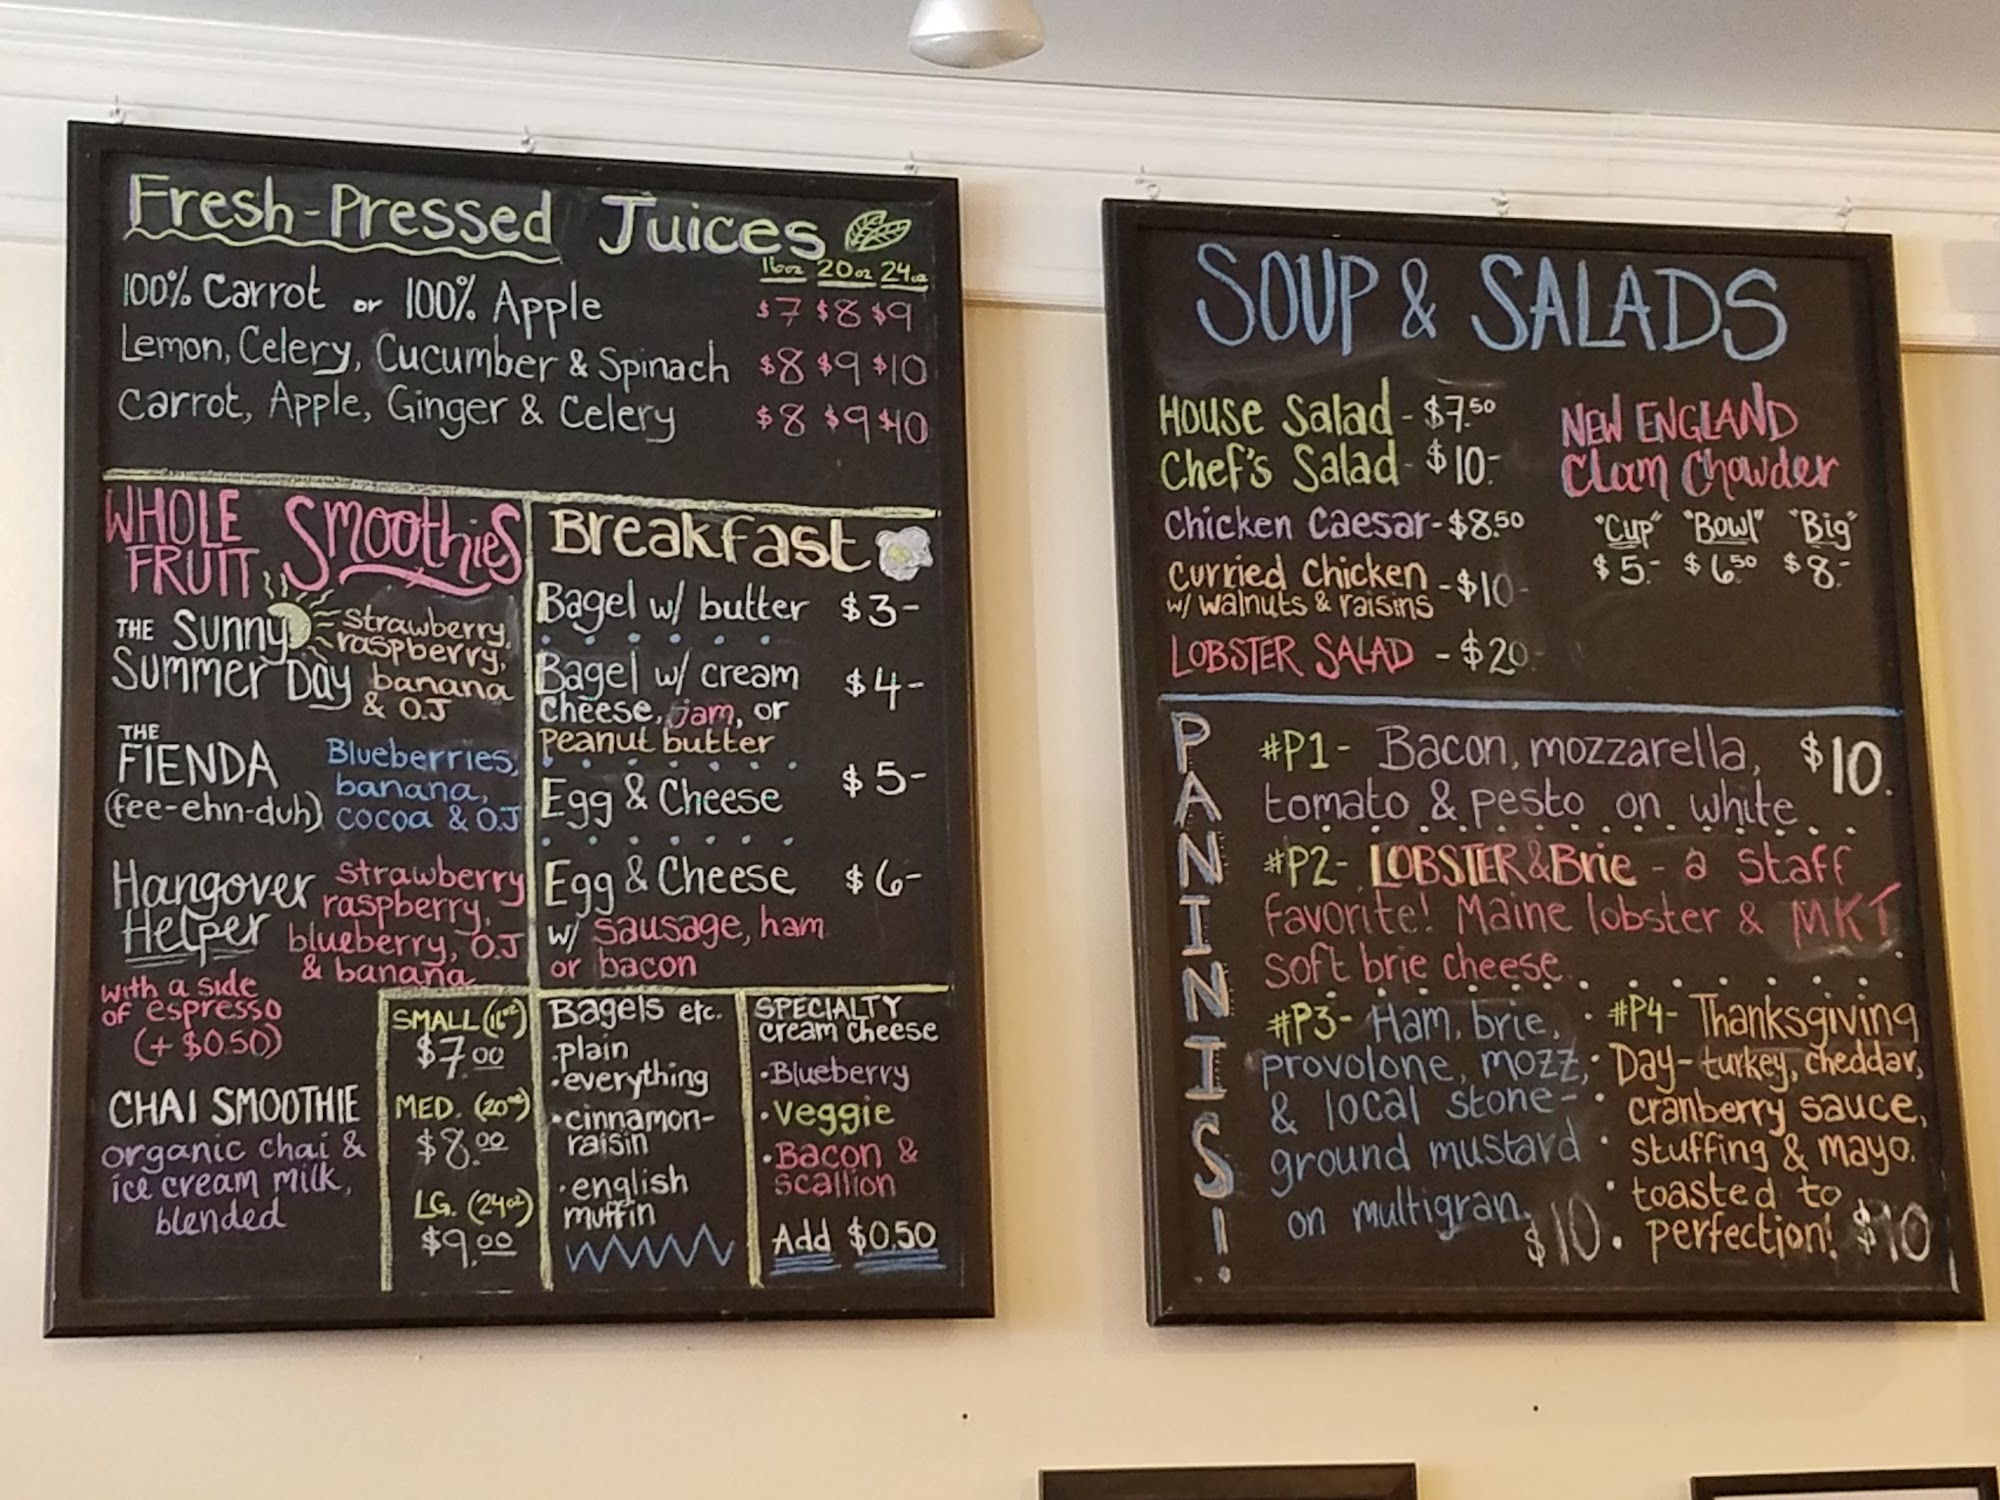 Fresh-Pressed Juices
16oz 20oz 24oz
100% Carrot or 100% Apple $7 $8 $9
Lemon, Celery, Cucumber & Spinach $8 $9 $10
Carrot, Apple, Ginger & Celery $8 $9 $10
WHOLE FRUIT Smoothies
THE Sunny Summer Day
strawberry,
raspberry,
banana
& O.J
THE
FIENDA
(fee-ehn-duh)
Blueberries,
banana,
cocoa & O.J
Hangover
Helper
strawberry
raspberry,
blueberry, O.J
& banana
with a side
of espresso
(+ $0.50)
CHAI SMOOTHIE
organic chai &
ice cream milk,
blended
SMALL (16oz)
$7.00
MED. (20oz)
$8.00
LG. (24oz)
$9.00
Breakfast
Bagel w/ butter $3-
Bagel w/ cream $4-
cheese, jam, or
peanut butter
Egg & Cheese $5-
Egg & Cheese $6-
w/ sausage, ham
or bacon
Bagels etc.
·plain
·everything
·cinnamon-
raisin
·english
muffin
SPECIALTY
cream cheese
·Blueberry
·Veggie
·Bacon &
scallion
Add $0.50
SOUP & SALADS
House Salad - $7.50
Chef's Salad - $10-
Chicken Caesar - $8.50
Curried Chicken - $10-
w/ walnuts & raisins
LOBSTER SALAD - $20-
NEW ENGLAND
Clam Chowder
"Cup" "Bowl" "Big"
$5.- $6.50 $8.-
PANINIS!
#P1- Bacon, mozzarella, $10.
tomato & pesto on white
#P2- LOBSTER & Brie - a staff
favorite! Maine lobster & MKT
soft brie cheese.
#P3- Ham, brie,
provolone, mozz,
& local stone-
ground mustard
on multigran.
$10.
#P4- Thanksgiving
Day- turkey, cheddar,
cranberry sauce,
stuffing & mayo.
toasted to
perfection! $10